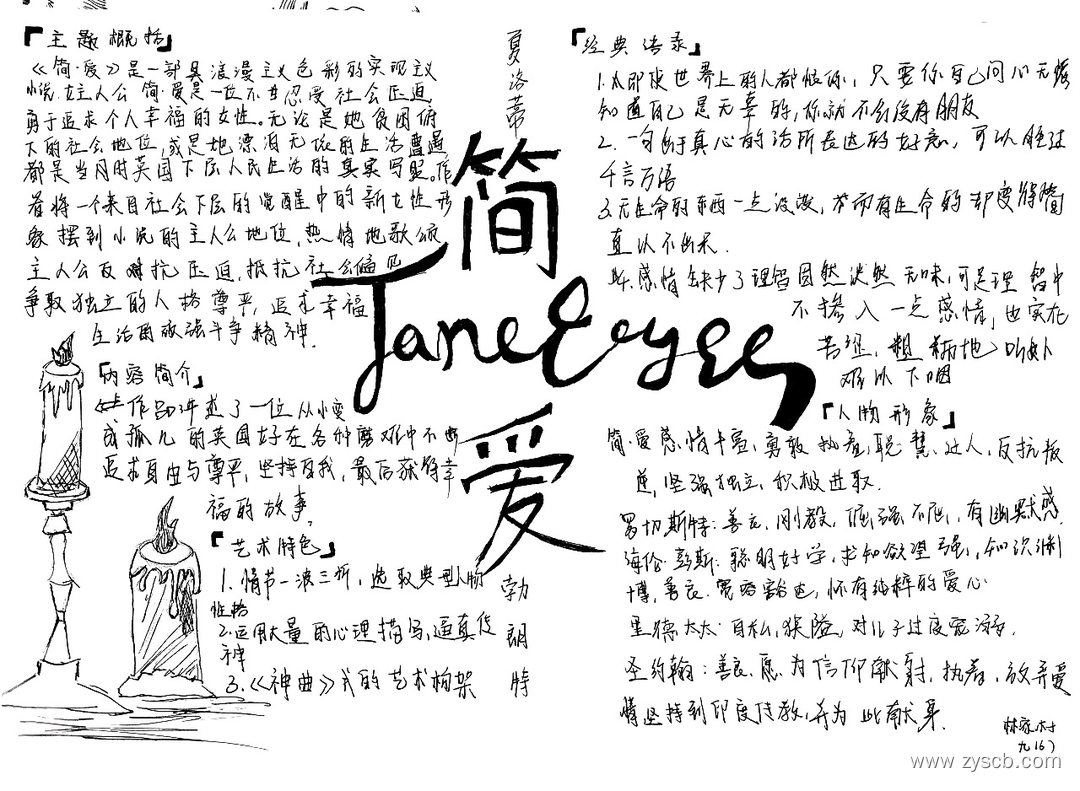 『主题概括』
《简·爱》是一部具浪漫主义色彩的实现主义
小说，女主人公简·爱是一位不甘忍受社会压迫，
勇于追求个人幸福的女性。无论是她贫困俯
下的社会地位，或是她漂泊无依的生活遭遇
都是当月时英国下层人民生活的真实写照。作
者将一个来自社会下层的觉醒中的新女性形
象摆到小说的主人公地位，热情地歌颂
主人公反对抗压迫，抵抗社会偏见
争取独立的人格尊严，追求幸福
生活的顽强斗争精神.
『内容简介』
作品讲述了一位从小变
成孤儿的英国好在各种磨难中不断
追求自由与尊严，坚持自我，最后获得幸
福的故事。
『艺术特色』
1.情节一波三折，选取典型人物
性格
2.运用大量的心理描写，逼真传
神
3.《神曲》式的艺术构架
夏洛蒂
简
Jane Eeyes
爱
勃朗特
『经典语录』
1.即使世界上的人都恨你，只要你自己问心无愧
知道自己是无辜的，你就不会没有朋友
2.一句出于真心的话所表达的好意，可以胜过
千言万语
3.无生命的东西一点没变，然而有生命的却变得简
直认不出来.
4.感情缺少了理智固然淡然无味，可是理智中
不掺入一点感情，也实在
苦涩、粗粝地叫如
难以下咽
『人物形象』
简·爱感情丰富，勇敢执着，聪慧过人，反抗叛
逆，坚强独立，积极进取.
罗切斯特：善良，刚毅，倔强不屈，有幽默感.
海伦·彭斯：聪明好学，求知欲望强，知识渊
博，善良.宽容豁达，怀有纯粹的爱心
里德太太：自私，狭隘，对儿子过度宽溺.
圣约翰：善良.愿为信仰献身，执着，放弃爱
情坚持到印度传教，并为此献身.
林家村
九(6)
www.zyscb.com